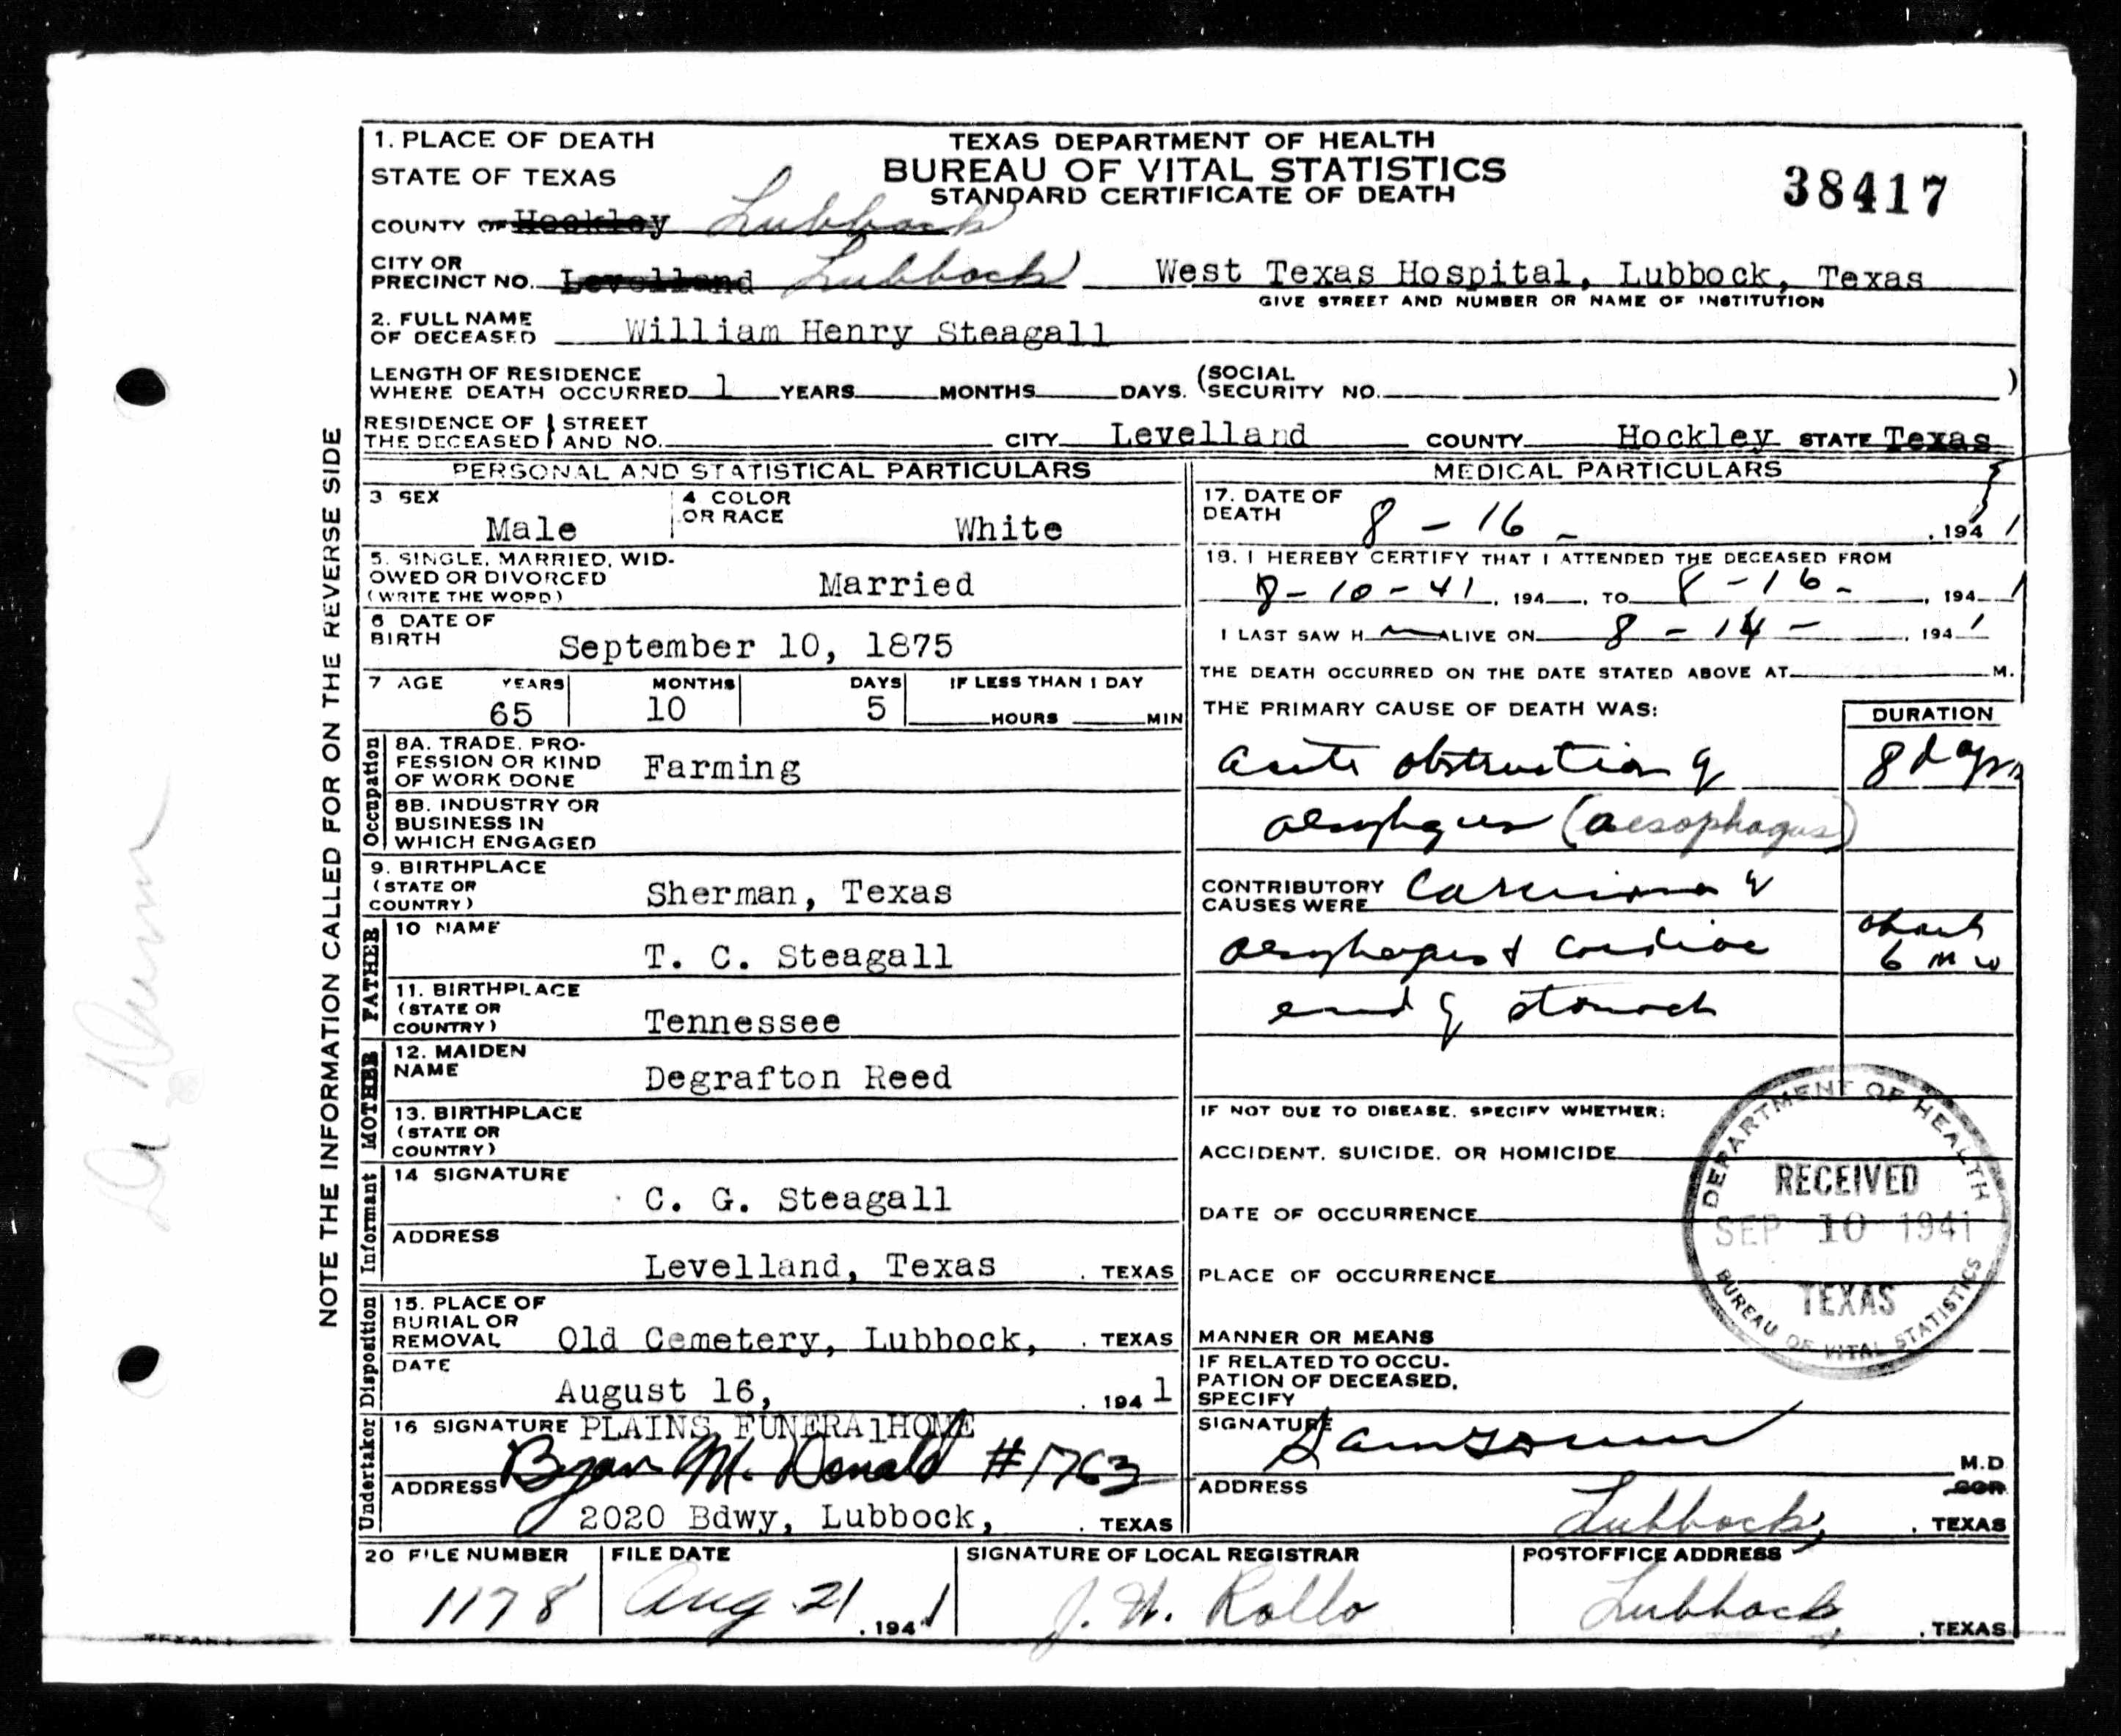 1. PLACE OF DEATH
STATE OF TEXAS
TEXAS DEPARTMENT OF HEALTH
BUREAU OF VITAL STATISTICS
STANDARD CERTIFICATE OF DEATH
38417
COUNTY OF Hockley Lubbock
CITY OR
PRECINCT NO. Levelland Lubbock West Texas Hospital, Lubbock, Texas
GIVE STREET AND NUMBER OR NAME OF INSTITUTION
2. FULL NAME
OF DECEASED William Henry Steagall
LENGTH OF RESIDENCE
WHERE DEATH OCCURRED 1 YEARS MONTHS DAYS. (SOCIAL
SECURITY NO. )
RESIDENCE OF THE DECEASED } STREET AND NO. CITY Levelland COUNTY Hockley STATE Texas
NOTE THE INFORMATION CALLED FOR ON THE REVERSE SIDE
PERSONAL AND STATISTICAL PARTICULARS
3 SEX
Male
4 COLOR
OR RACE
White
5. SINGLE, MARRIED, WID-
OWED OR DIVORCED
(WRITE THE WORD)
Married
6 DATE OF
BIRTH September 10, 1875
7 AGE YEARS MONTHS DAYS IF LESS THAN 1 DAY
65 10 5 HOURS MIN
Occupation
8A. TRADE, PRO-
FESSION OR KIND
OF WORK DONE
Farming
8B. INDUSTRY OR
BUSINESS IN
WHICH ENGAGED
9. BIRTHPLACE
(STATE OR
COUNTRY)
Sherman, Texas
FATHER
10 NAME
T. C. Steagall
11. BIRTHPLACE
(STATE OR
COUNTRY)
Tennessee
MOTHER
12. MAIDEN
NAME
Degrafton Reed
13. BIRTHPLACE
(STATE OR
COUNTRY)
Informant
14 SIGNATURE
C. G. Steagall
ADDRESS
Levelland, Texas , TEXAS
Disposition
15. PLACE OF
BURIAL OR
REMOVAL Old Cemetery, Lubbock, , TEXAS
DATE
August 16, , 1941
Undertaker
16 SIGNATURE PLAINS FUNERAlHOME
Byan McDonald #1763
ADDRESS
2020 Bdwy, Lubbock, , TEXAS
MEDICAL PARTICULARS
17. DATE OF
DEATH 8 - 16 - , 1941
18. I HEREBY CERTIFY THAT I ATTENDED THE DECEASED FROM
8-10-41, 194 , TO 8-16- , 1941
I LAST SAW H ALIVE ON 8 - 14 - , 1941
THE DEATH OCCURRED ON THE DATE STATED ABOVE AT M.
THE PRIMARY CAUSE OF DEATH WAS:
DURATION
acute obstruction of 8 days
aesophagus (aesophagus)
CONTRIBUTORY
CAUSES WERE Carcinoma of
aesophagus & cardiac
about
6 mo
end of stomach
IF NOT DUE TO DISEASE, SPECIFY WHETHER:
ACCIDENT, SUICIDE, OR HOMICIDE
DATE OF OCCURRENCE
PLACE OF OCCURRENCE
DEPARTMENT OF HEALTH
RECEIVED
SEP 10 1941
TEXAS
BUREAU OF VITAL STATISTICS
MANNER OR MEANS
IF RELATED TO OCCU-
PATION OF DECEASED,
SPECIFY
SIGNATURE
M.D.
COR
ADDRESS
Lubbock, , TEXAS
20 FILE NUMBER
1178
FILE DATE
Aug 21 , 1941
SIGNATURE OF LOCAL REGISTRAR
J. W. Rollo
POSTOFFICE ADDRESS
Lubbock , TEXAS